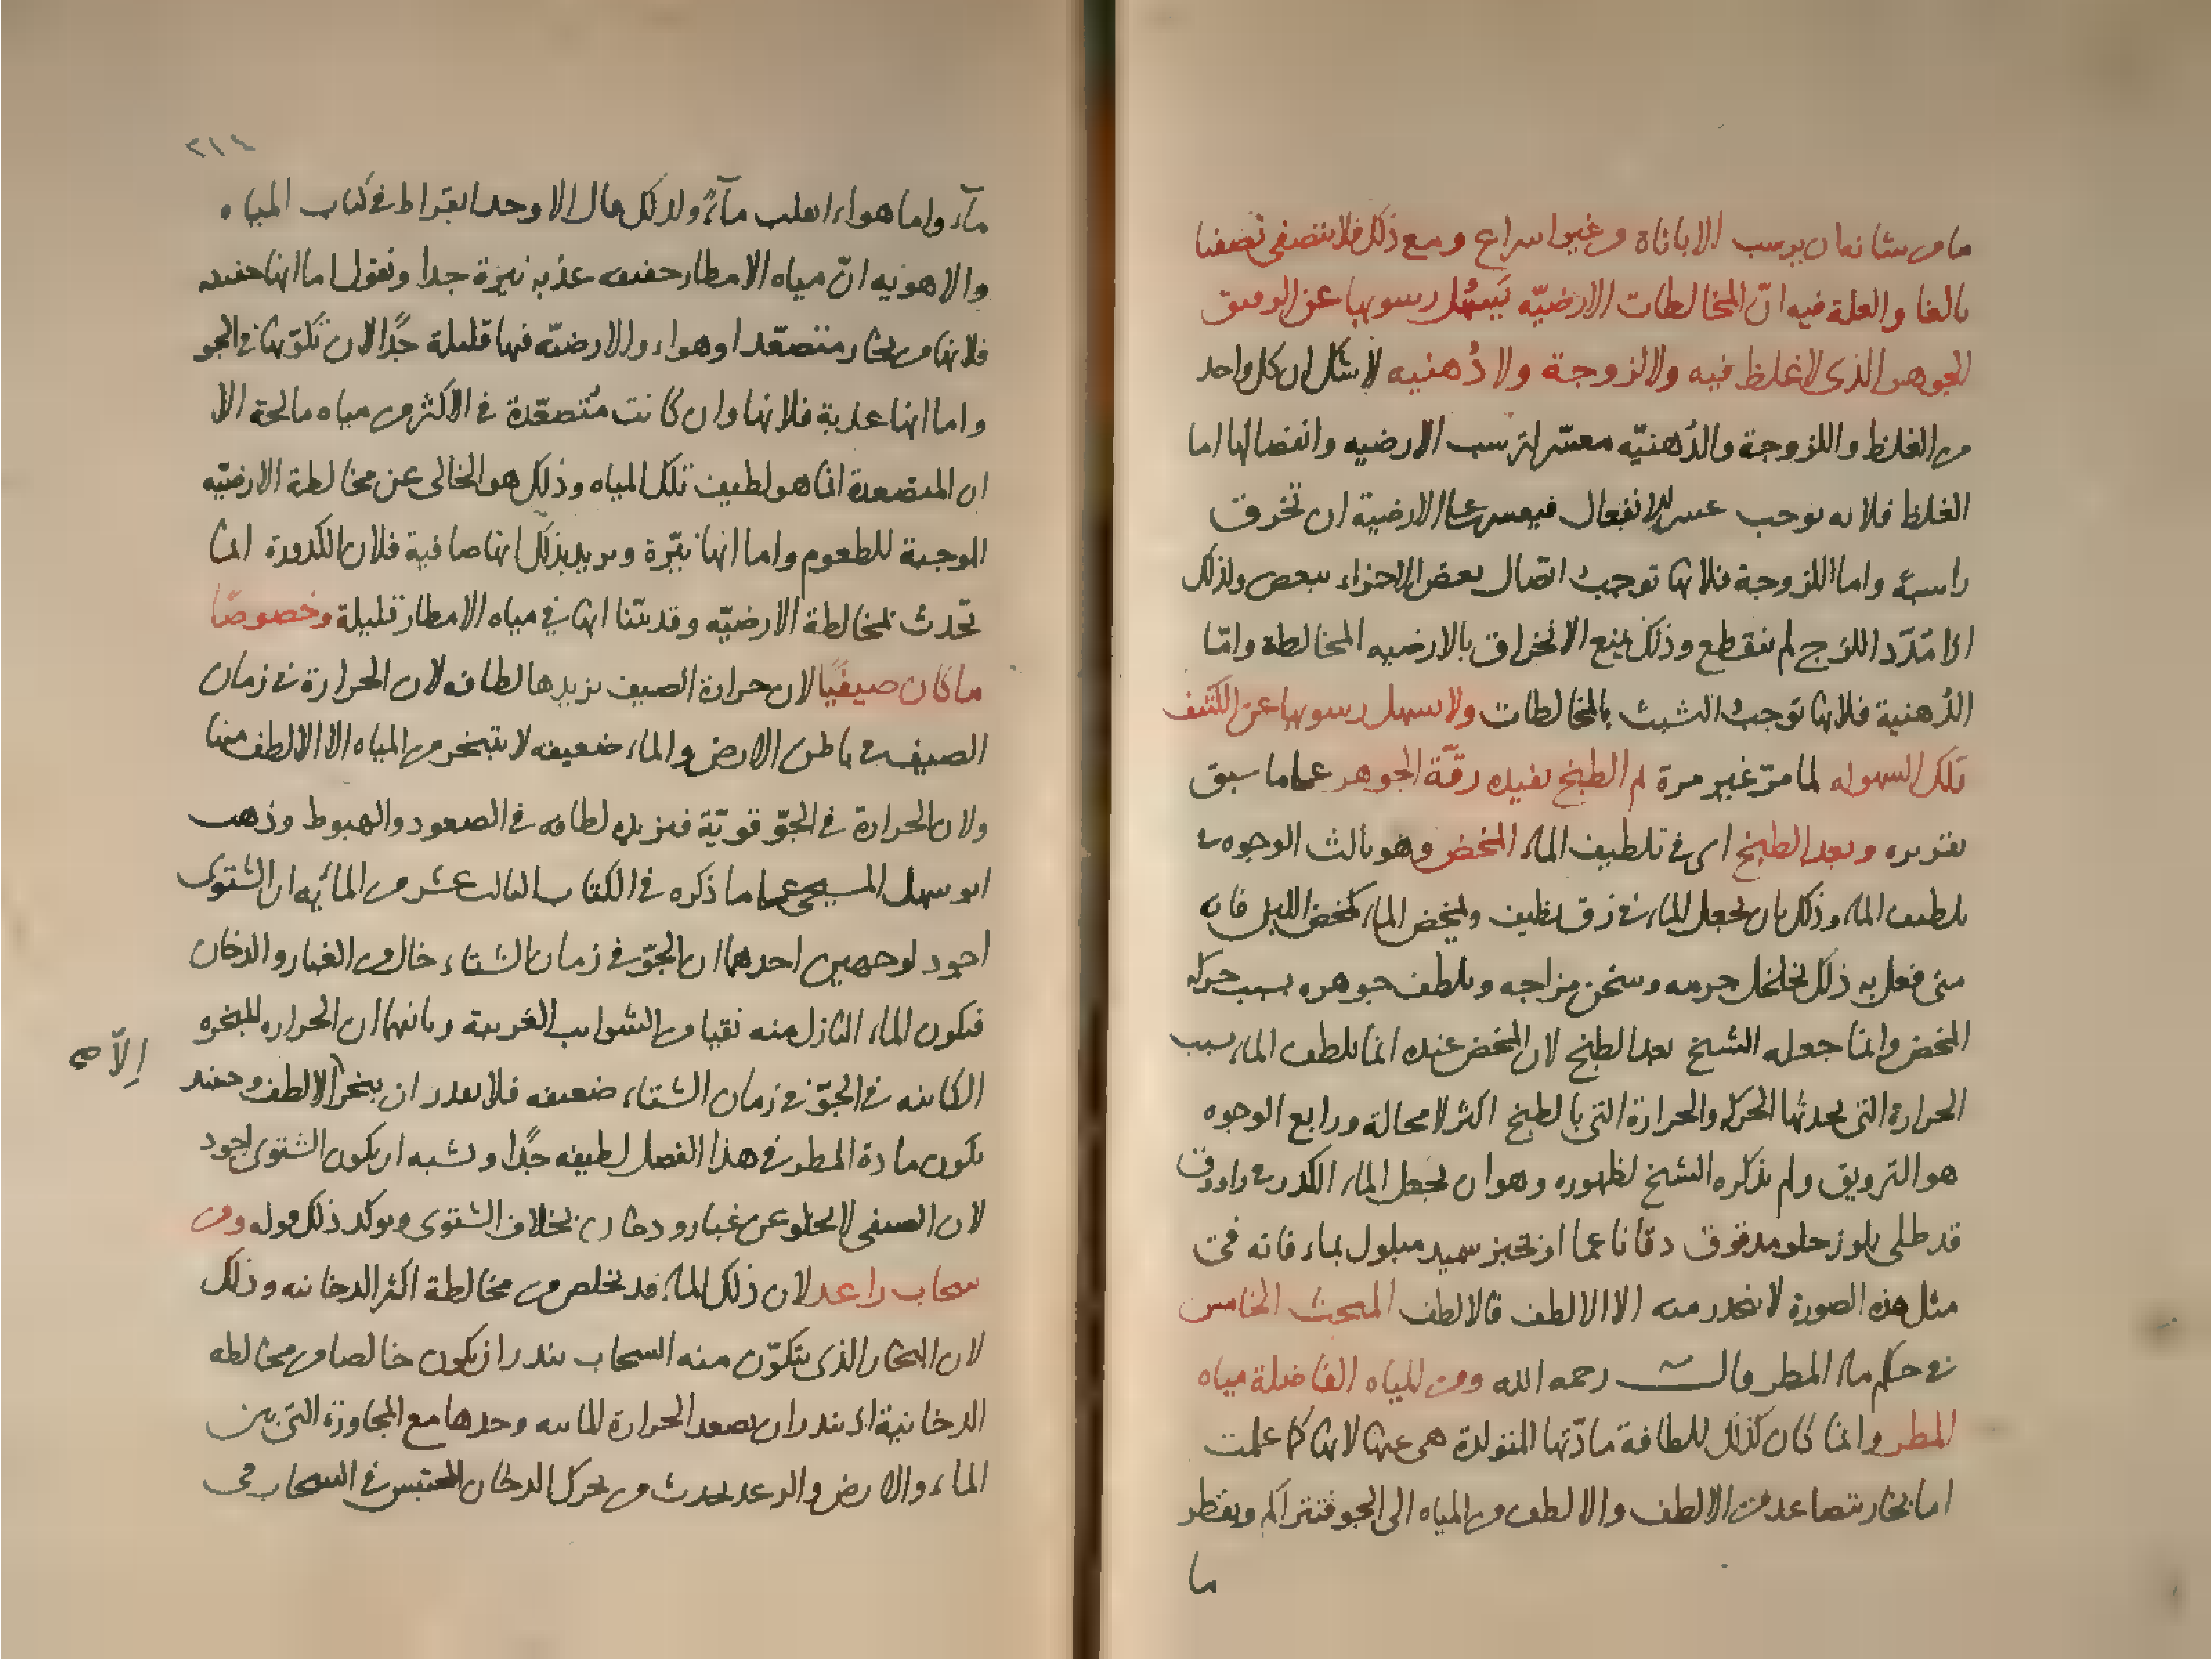 ما من شانها ان يرسب الا باناة من غير اسراع ومع ذلك فلا يتصفى تصفيا
بالغا والعلة فيه انّ المخالطات الارضيّه يَسهُل رسوبها عن الرقيق
الجوهر الذى لا غلظ فيه ولا لزوجة ولا دُهنيه لا شك ان كل واحد
من الغلظ واللزوجة والدُهنيّه معسّر لترسب الارضيه وانفصالها اما
الغلظ فلانه يوجب عسر الانفعال فيعسر على الارضية ان تخرق
راسبة واما اللزوجة فلانها توجب اتصال بعض الاجزاء ببعض ولذلك
اذا مُدّد اللزج لم ينقطع وذلك يمنع الانخراق بالارضيه المخالطة وامّا
الدُهنية فلانها توجب التشبث بالمخالطات ولا يسهل رسوبها عن الكثيف
تلك السهوله لما مرّ غير مرة ثم الطبخ يفيده رقّة الجوهر على ما سبق
تقريره وبعد الطبخ اى فى تلطيف الماء المخض وهو ثالث الوجوه فى
تلطيف الماء وذلك بان يجعل الماء فى زق نظيف ويمخض الماء كمخض اللبن فانه
متى فعل به ذلك تخلخل جرمه وسخن مزاجه وتلطف جوهره بسبب حركة
المخض وانما جعله الشيخ بعد الطبخ لان المخض عنده انما يلطف الماء بسبب
الحرارة التى تحدثها الحركة والحرارة التى بالطبخ اكثر لا محالة ورابع الوجوه
هو الترويق ولم يذكره الشيخ لظهوره وهو ان يجعل الماء الكدر فى راووق
قد طلى بلوز حلو مدقوق دقا ناعما او بخبز سميد مبلول بماء فانه فى
مثل هذه الصورة لا ينحدر منه الا الالطف فالالطف المبحث الخامس
فى حكم ماء المطر قال رحمه الله ومن المياه الفاضلة مياه
المطر وانما كان كذلك للطافة مادّتها المتولدة هى عنها لانها كما علمت
اما بخار يتصاعد من الالطف والالطف من المياه الى الجو فيتراكم ويقطر
ما
٢١٤
مآء واما هواء انقلب مآءً ولذلك قال الاوحد ابقراط فى كتاب المياه
والاهويه انّ مياه الامطار خفيفه عذبه نيرة جدا ونقول اما انها خفيفه
فلانها من بخار متصعّد او هواء والارضيّه فيها قليلة جدًا لان تكوّنها فى الجو
واما انها عذبة فلانها وان كانت مُتصعّدة فى الاكثر من مياه مالحة الا
ان المتصعدة انما هو لطيف تلك المياه وذلك هو الخالى عن مخالطة الارضيّه
الموجبة للطعوم واما انها نيّرة ويريد بذلك انها صافية فلان الكدورة انما
تحدث لمخالطة الارضيّه وقد بيّنا انها فى مياه الامطار قليلة وخصوصًا
ما كان صيفيًا لان حرارة الصيف يزيدها لطافه لان الحرارة فى زمان
الصيف فى باطن الارض والماء ضعيفه لا يتبخر من المياه الا الالطف منها
ولان الحرارة فى الجوّ قويّة فيزيده لطافه فى الصعود والهبوط وذهب
ابو سهل المسيحى على ما ذكره فى الكتاب الثالث عشر من المائه ان الشتوى
اجود لوجهين احدهما ان الجوّ فى زمان الشتاء خال من الغبار والدخان
فيكون الماء النازل منه نقيا من الشوايب الغريبة وثانيهما ان الحراره المبخره
الكاينه فى الجوّ فى زمان الشتاء ضعيفه فلا يقدر ان يبخر الالطف وحينئد
اِلاّ صح
يكون مادة المطر فى هذا الفصل لطيفه جدًا ويشبه ان يكون الشتوى اجود
لان الصيفى لا يخلو عن غبار ودخان بخلاف الشتوى ويوكد ذلك قوله ومن
سحاب راعد لان ذلك الماء قد تخلص من مخالطة اكثر الدخانيه وذلك
لان البخار الذى يتكوّن منه السحاب يندر ان يكون خالصا من مخالطه
الدخانية اذ يندر ان يصعد الحرارة المائيه وحدها مع المجاورة التى بين
الماء والارض والرعد يحدث من تحرك الدخان المحتبس فى السحاب فى